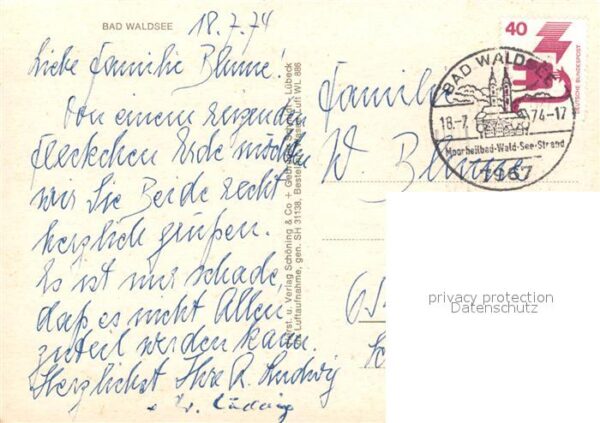 BAD WALDSEE
18.7.74
Liebe Familie Blume!
Von einem reizenden
Fleckchen Erde möchten
wir Sie Beide recht
herzlich grüßen.
Es ist nur schade,
daß es nicht Allen
zuteil werden kann.
Herzlichst Ihre R. Ludwig
Verlag Schöning & Co + Gebrüder Schmidt, Lübeck
Luftaufnahme, gen. SH 31138, Bestell
Luft WL 886
40
DEUTSCHE BUNDESPOST
BAD WALDSEE
18.-7. 74-17
Moorheilbad-Wald-See-Strand
7967
Familie
W. Blume
privacy protection
Datenschutz